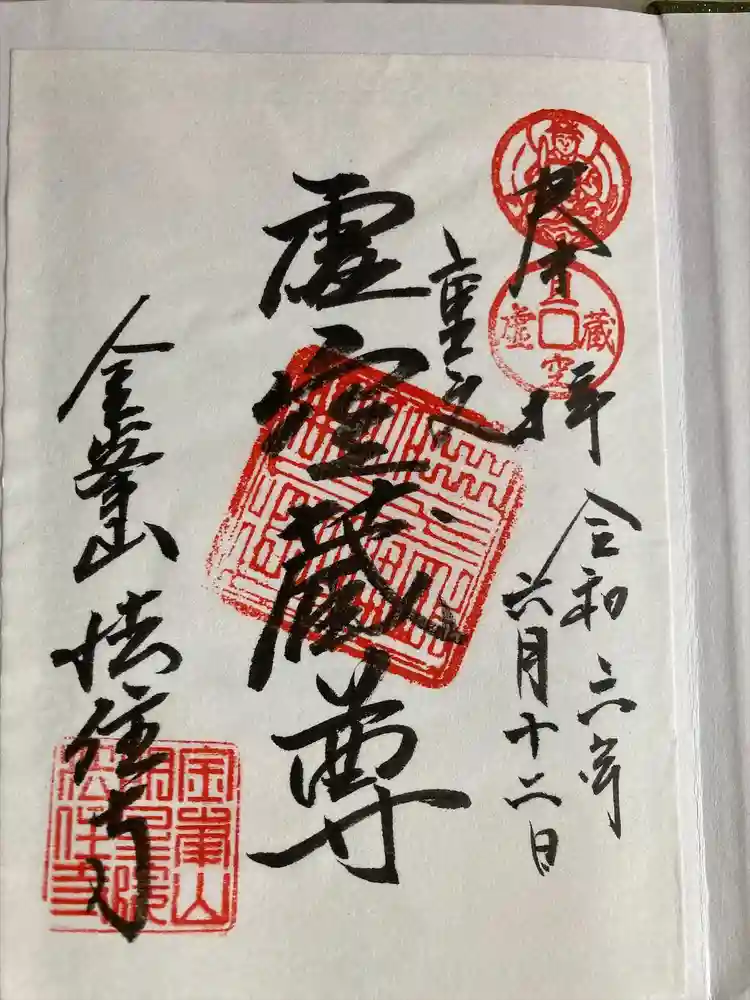 奉拝
虚空蔵
令和六年
六月十二日
虚空蔵尊
金峯山 法住寺
金峯山
明星院
法住寺